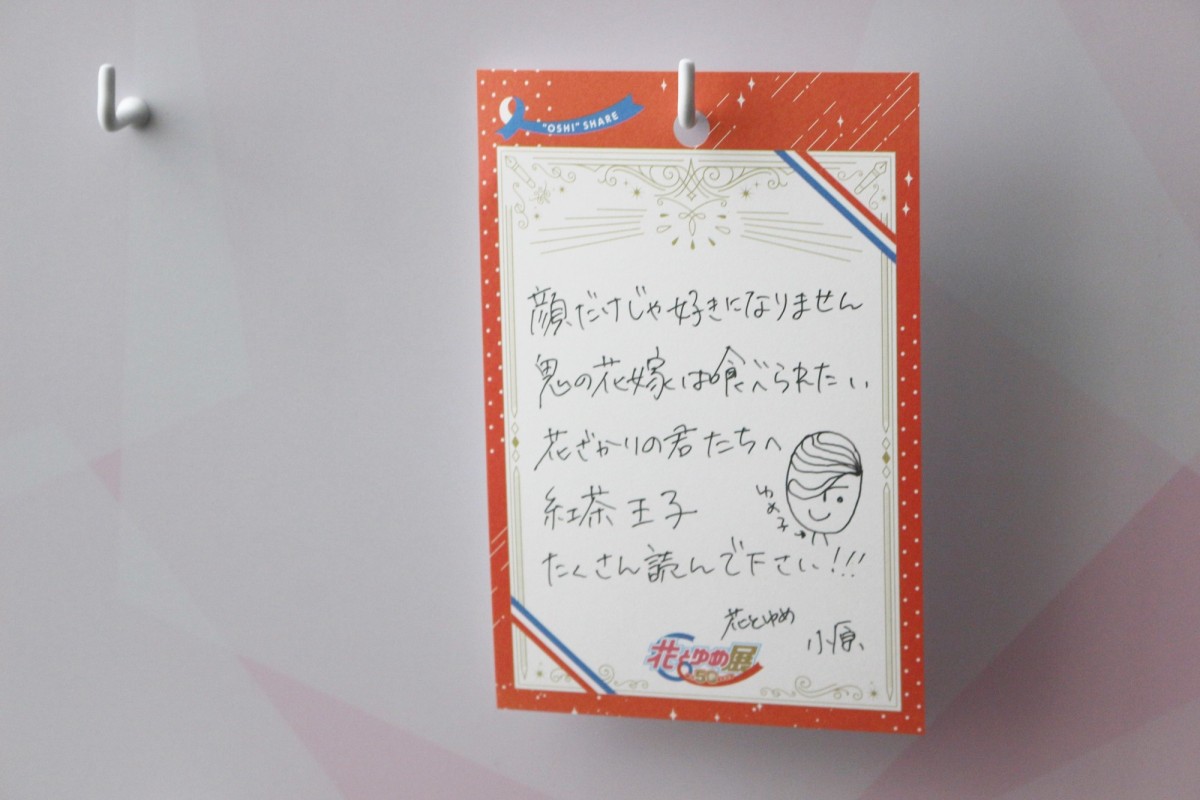 "OSHI" SHARE
顔だけじゃ好きになりません
鬼の花嫁は喰べられたい
花ざかりの君たちへ
紅茶王子
ゆめ子→
たくさん読んで下さい!!!
花とゆめ
小原
花とゆめ展
50